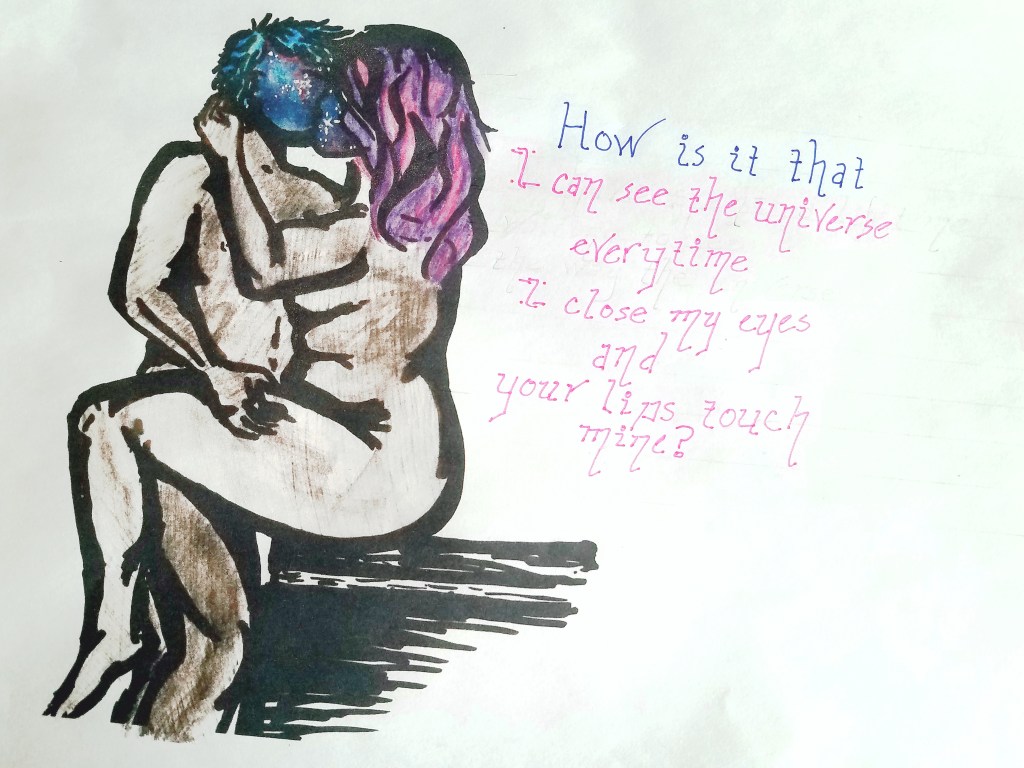 How is it that
I can see the universe
everytime
I close my eyes
and
your lips touch
mine?